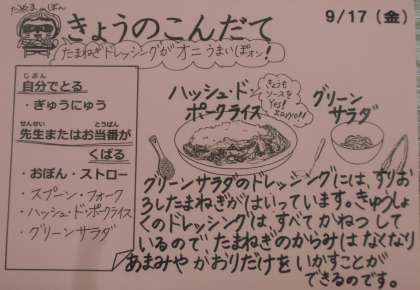 きょうのこんだて
9/17（金）
たまねぎドレッシングがオニうまいぽォン!
じぶん
自分でとる
・ぎゅうにゅう
せんせい とうばん
先生またはお当番が
くばる
・おぼん・ストロー
・スプーン・フォーク
・ハッシュ・ド・ポークライス
・グリーンサラダ
ハッシュ・ド・
ポークライス
ソースを
グリーン
サラダ
グリーンサラダのドレッシングには、すりお
ろしたたまねぎがはいっています。きゅうしょ
くのドレッシングは、すべてかねつし
ているので、たまねぎのからみはなくなり
あまみやかおりだけをいかすことが
できるのです。